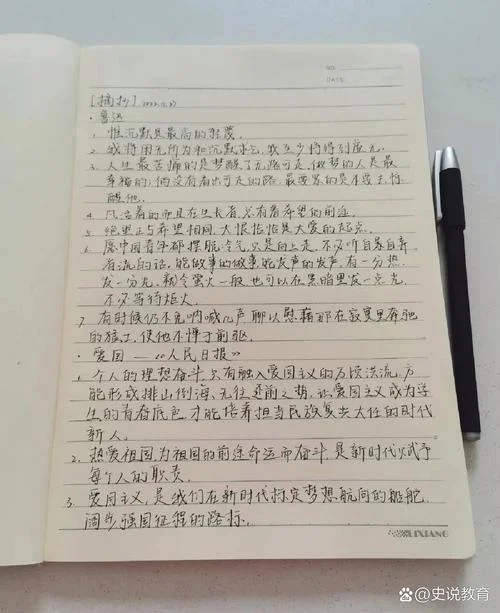 NO.
DATE:
[摘抄] 2022.11.27
·鲁迅
1. 惟沉默是最高的轻蔑。
2. 我将用无所为和沉默求乞,我至少将得到虚无。
3. 人生最苦痛的是梦醒了无路可走,做梦的人是最
幸福的;倘没有看出可走的路,最要紧的是不要去惊
醒他。
4. 凡活着的而且在生长者,总有着希望的前途。
5. 绝望正与希望相同,大恨恰恰是大爱的起点。
6. 愿中国青年都摆脱冷气,只是向上走,不必听自暴自弃
者流的话。能做事的做事,能发声的发声。有一分热
发一分光,就令萤火一般,也可以在黑暗里发一点光,
不必等待炬火。
7. 有时候仍不免呐喊几声,聊以慰藉那在寂寞里奔驰
的猛士,使他不惮于前驱。
·爱国——《人民日报》
1. 个人的理想奋斗,只有融入爱国主义的万顷洪流,方
能形成排山倒海、无往不前之势,让爱国主义成为学
生的青春底色,才能培养担当民族复兴大任的时代
新人。
2. 热爱祖国,为祖国的前途命运而奋斗,是新时代赋予
每个人的职责。
3. 爱国主义,是我们在新时代标定梦想航向的舵舵,
阔步强国征程的路标。
LIXIANG
百家号/史说教育